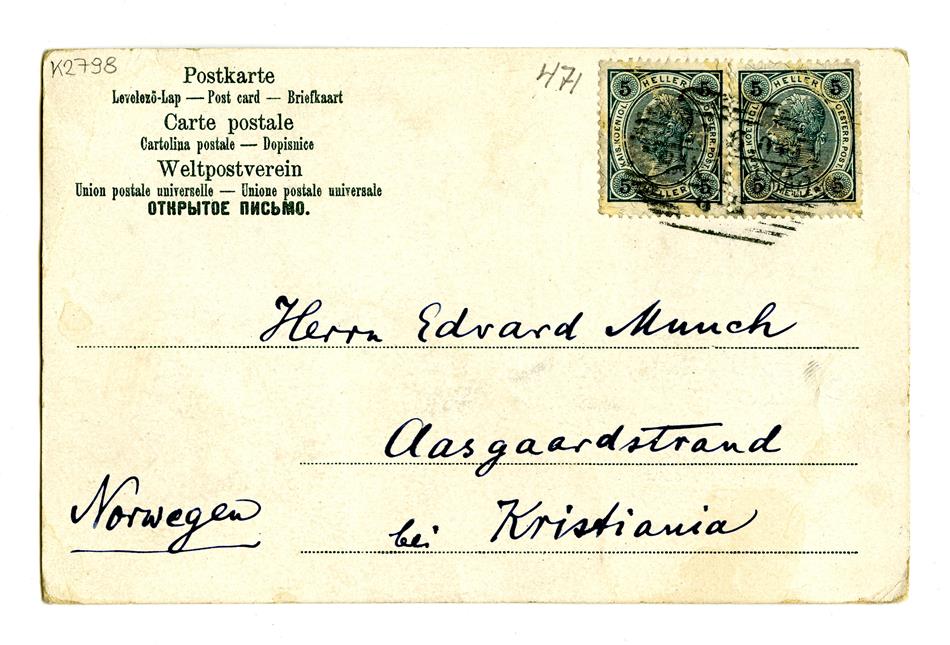 K2798
Postkarte
Levelező-Lap — Post card — Briefkaart
Carte postale
Cartolina postale — Dopisnice
Weltpostverein
Union postale universelle — Unione postale universale
ОТКРЫТОЕ ПИСЬМО.
471
5 HELLER 5
KAIS. KOENIGL. OESTERR. POST
5 HELLER 5
5 HELLER 5
KAIS. KOENIGL. OESTERR. POST
5 HELLER 5
Herrn Edvard Munch
Aasgaardstrand
Norwegen
bei Kristiania